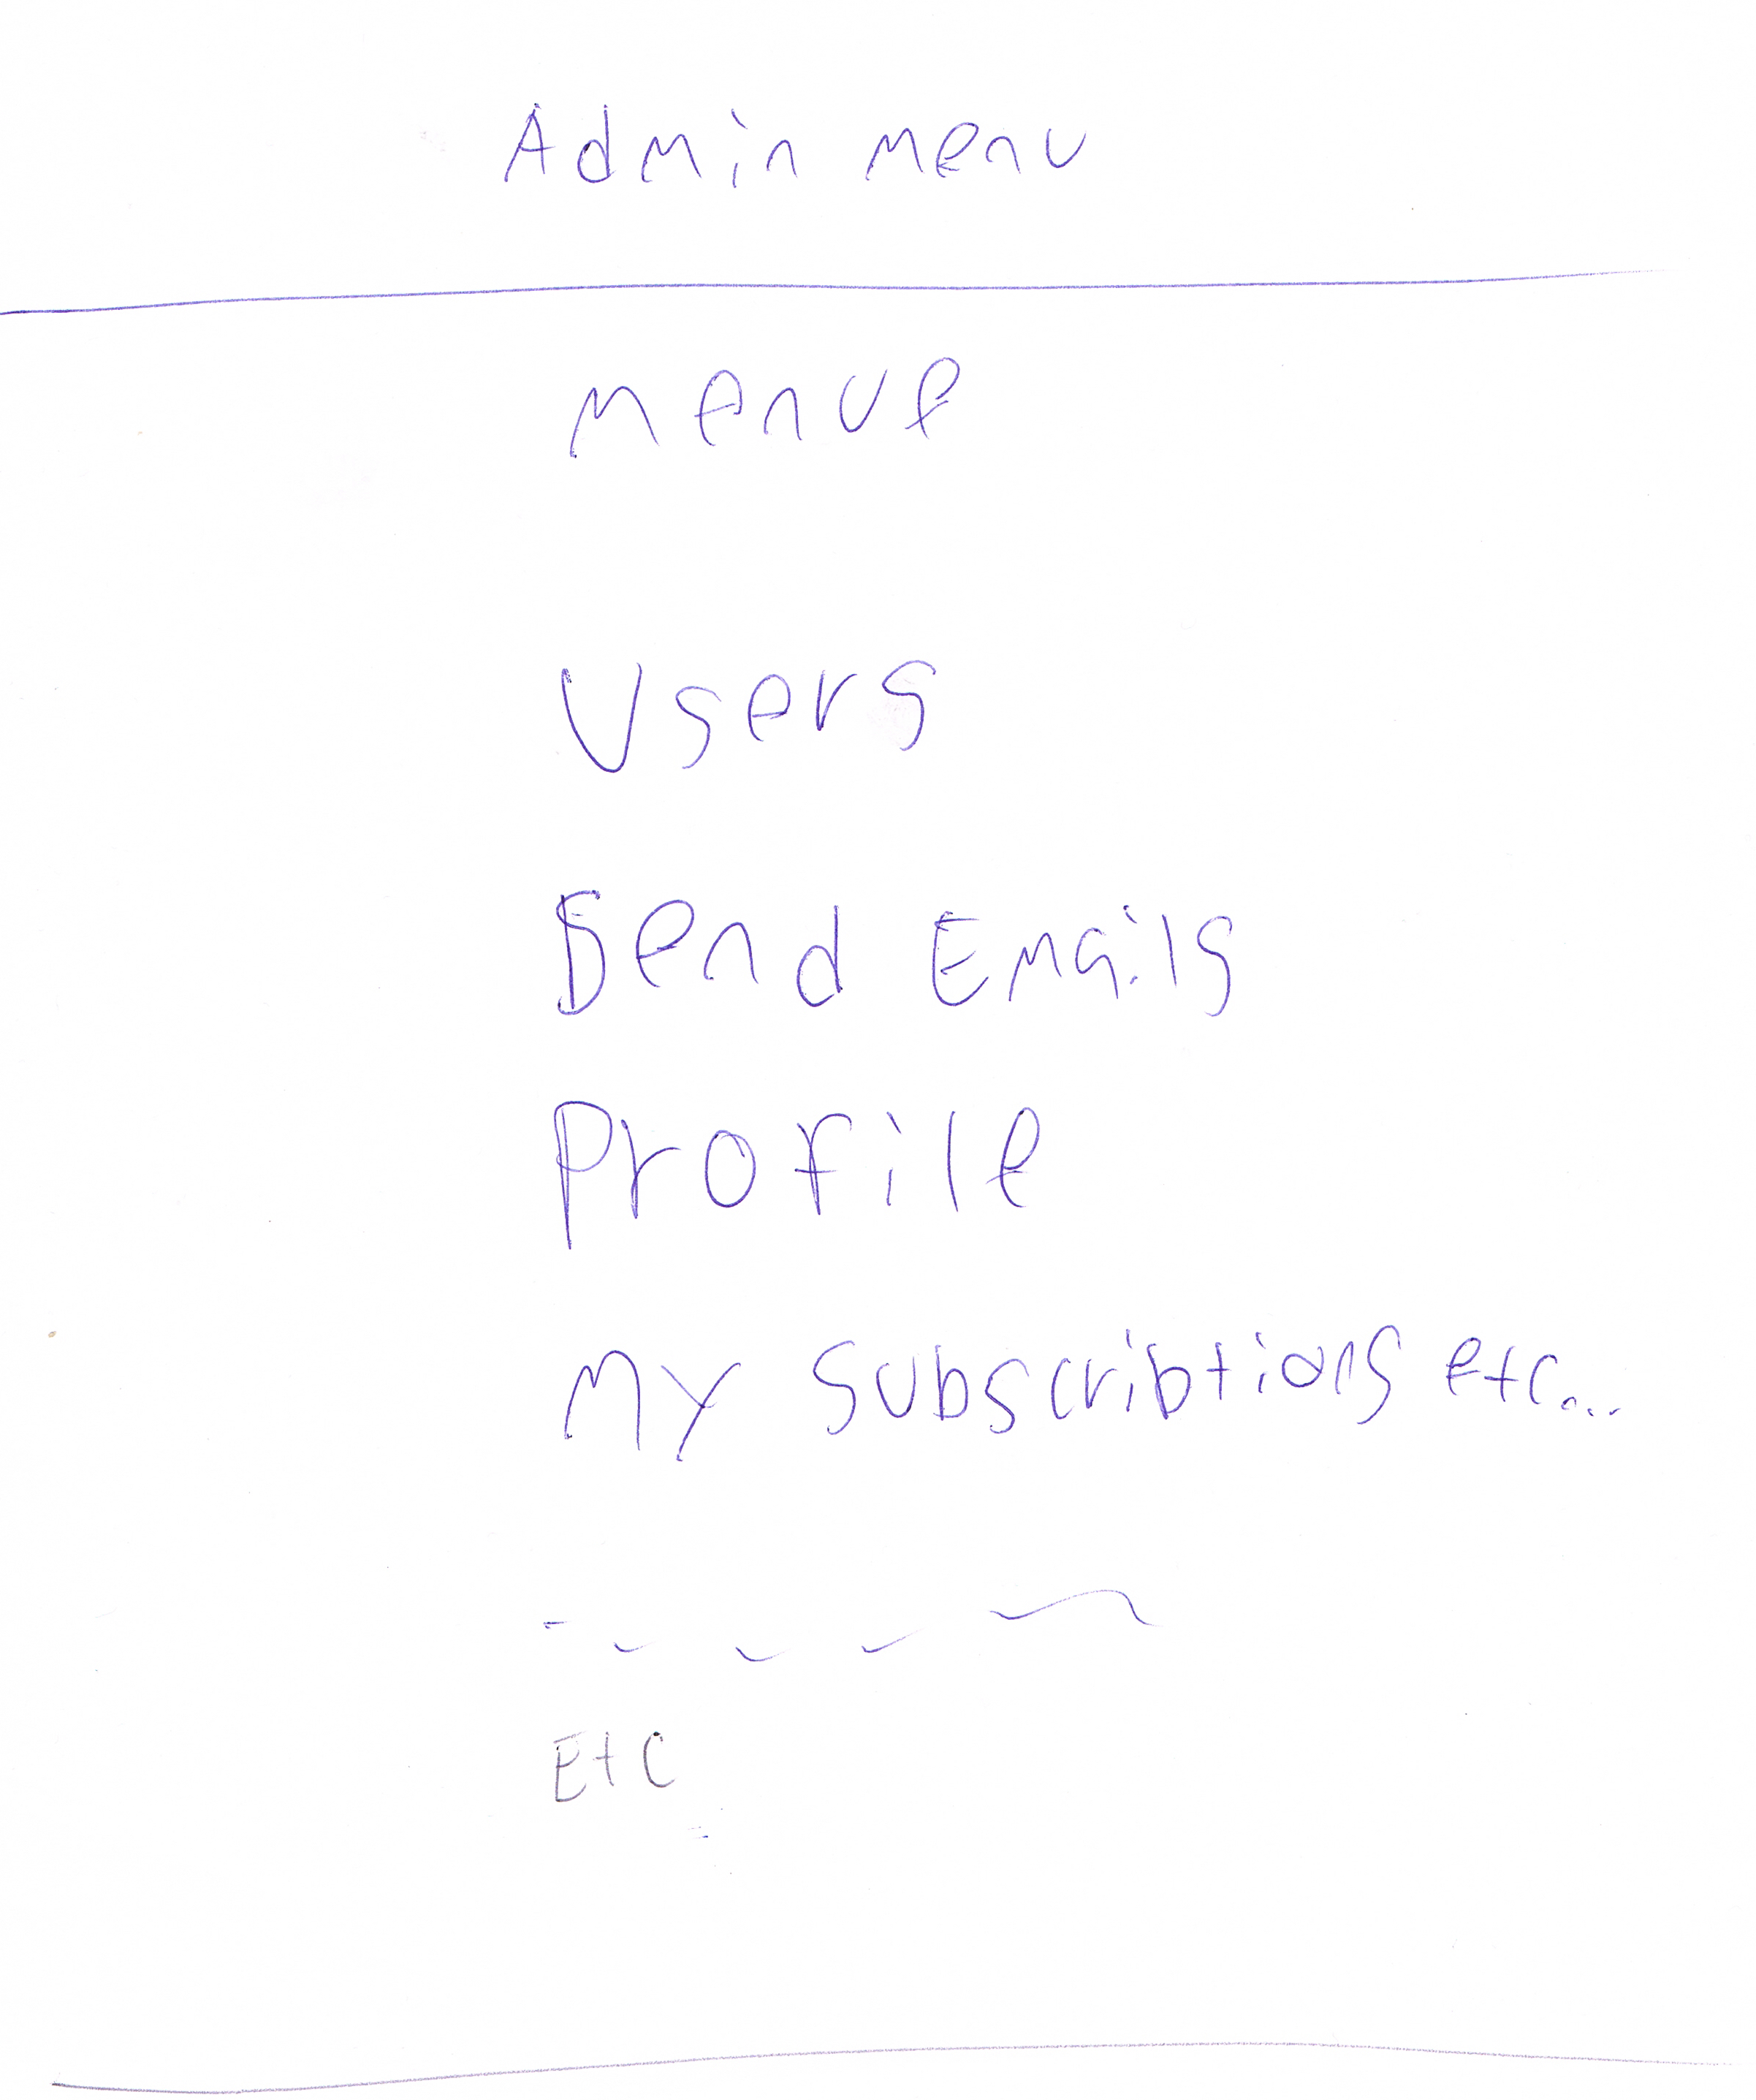 Admin menu
menue
Users
Send Emails
Profile
My subscribtions etc...
Etc